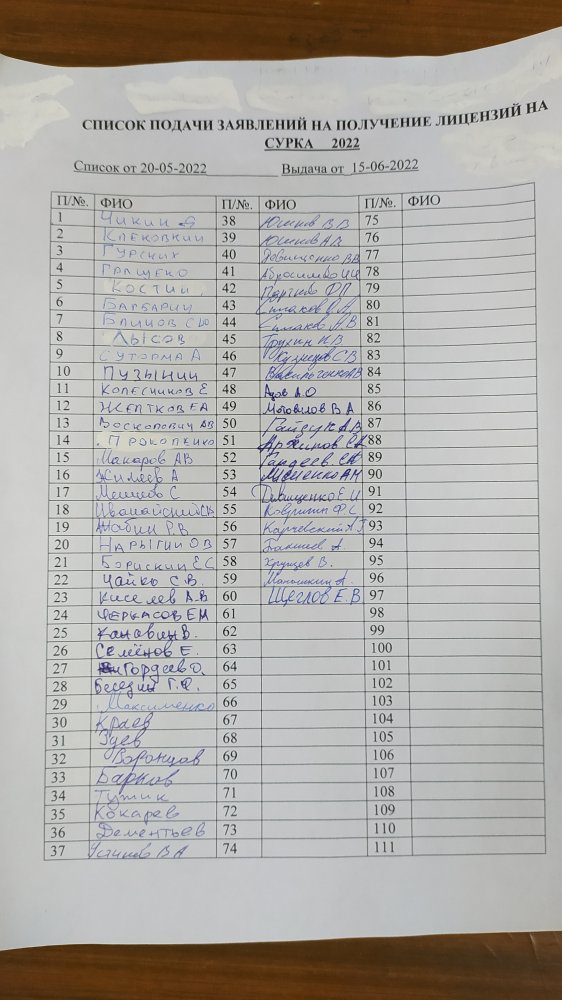 СПИСОК ПОДАЧИ ЗАЯВЛЕНИЙ НА ПОЛУЧЕНИЕ ЛИЦЕНЗИЙ НА
СУРКА 2022
Список от 20-05-2022 Выдача от 15-06-2022
П/№. ФИО П/№. ФИО П/№. ФИО
1 Чикин Я 38 Юшнов В В 75
2 39 Юшнов А В 76
3 Гурских 40 77
4 Гращенко 41 78
5 Костин 42 79
6 Барбарин 43 80
7 Блинов С Ю 44 81
8 Лысов 45 Трухин Н В 82
9 Суторма А 46 Кузнецов С В 83
10 Пузынин 47 84
11 Колесников Е 48 А О 85
12 Желтков Е А 49 Мотовилов В А 86
13 АВ 50 Гайдук А В 87
14 Прокопенко 51 Архипов 88
15 Макаров АВ 52 Гордеев 89
16 Жиляев А 53 90
17 Мешков С 54 Е И 91
18 55 Ф С 92
19 Жабин Р.В 56 Карчевский А 93
20 Нарыгин ОВ 57 А. 94
21 Борискин Е С 58 Хрущев В. 95
22 Чайко С.В. 59 Маношкин А. 96
23 Киселев А.В 60 Щеглов Е.В 97
24 Черкасов Е Н 61 98
25 Канавин В. 62 99
26 Семёнов Е. 63 100
27 Гордеев О. 64 101
28 Беседин Г.Ф. 65 102
29 Максименко 66 103
30 Краев 67 104
31 68 105
32 Воронцов 69 106
33 Барков 70 107
34 Тупик 71 108
35 Кокарев 72 109
36 Дементьев 73 110
37 Устинов В А 74 111